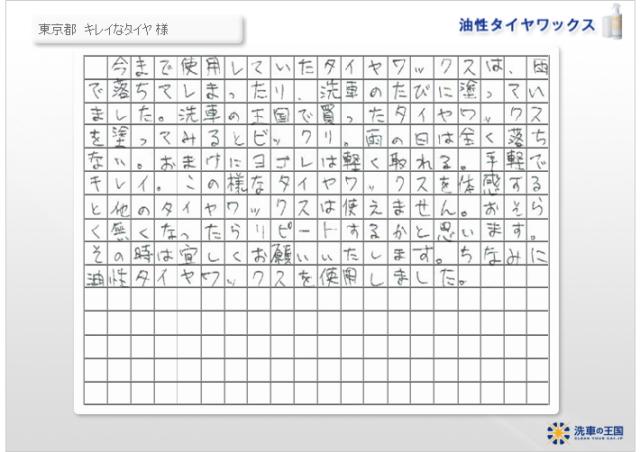 東京都 キレイなタイヤ 様
油性タイヤワックス
今まで使用していたタイヤワックスは、雨
で落ちてしまったり、洗車のたびに塗ってい
ました。洗車の王国で買ったタイヤワックス
を塗ってみるとビックリ。雨の日は全く落ち
ない。おまけにヨゴレは軽く取れる。手軽で
キレイ。この様なタイヤワックスを体感する
と他のタイヤワックスは使えません。おそら
く無くなったらリピートするかと思います。
その時は宜しくお願いいたします。ちなみに
油性タイヤワックスを使用しました。
洗車の王国
CLEAN YOUR CAR.JP